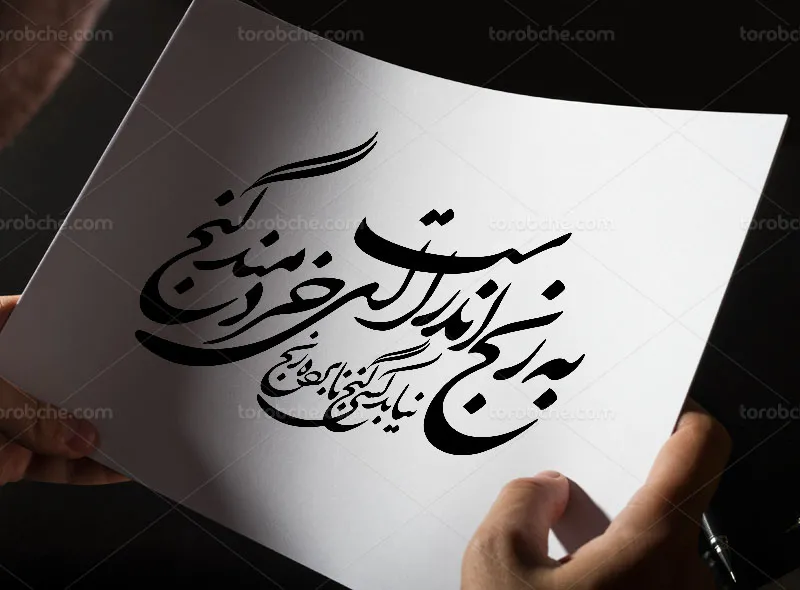 به رنج اندر است ای خردمند گنج
نیابد کسی گنج نابرده رنج
torobche.com torobche.com torobche.com torobche.com
torobche.com torobche.com torobche.com
torobche.com torobche.com torobche.com